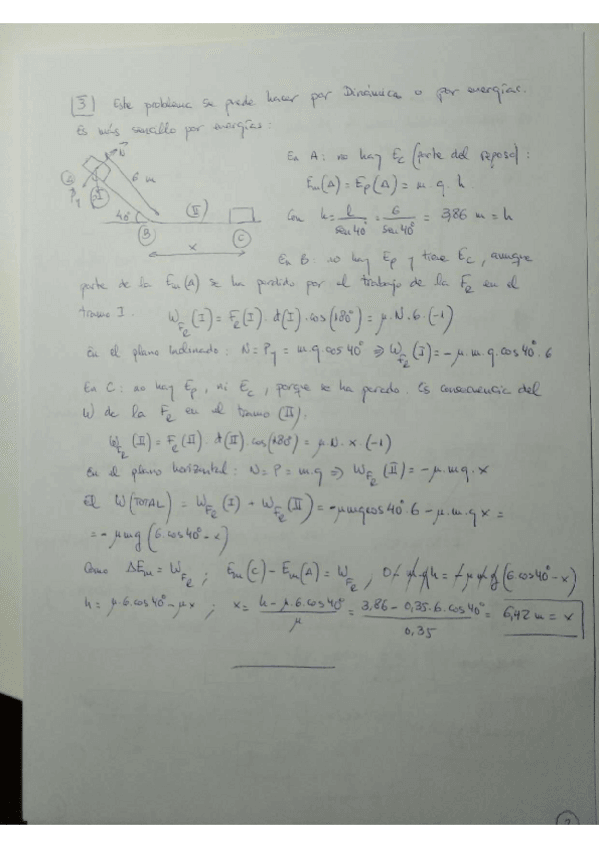 3 Este problema se puede hacer por Dinámica o por energías.
Es más sencillo por energías:
En A: no hay Ec (parte del reposo):
Em(A) = Ep(A) = m.g.h.
Con h = l/sen40° = 6/sen40° = 3,86 m = h
A
6 m
40°
(II)
B
x
C
En B: no hay Ep y tiene Ec, aunque
parte de la Em(A) se ha perdido por el trabajo de la FR en el
tramo I. WFR(I) = FR(I).d(I).cos(180°) = μ.N.6.(-1)
En el plano inclinado: N = Py = m.g.cos40° ⇒ WFR(I) = -μ.m.g.cos40°.6
En C: no hay Ep, ni Ec, porque se ha parado. Es consecuencia del
W de la FR en el tramo (II).
WFR(II) = FR(II).d(II).cos(180°) = μ.N.x.(-1)
En el plano horizontal: N = P = m.g ⇒ WFR(II) = -μ.mg.x
El W(TOTAL) = WFR(I) + WFR(II) = -μmgcos40°.6 - μ.m.g x =
= -μmg(6.cos40° - x)
Como ΔEm = WFR ; Em(C) - Em(A) = WFR ; 0 - mgh = -μmg(6cos40° - x)
h = μ.6.cos40° - μx ; x = (h - μ.6.cos40°)/μ = (3,86 - 0,35.6.cos40°)/0,35 = 6,42 m = x
2